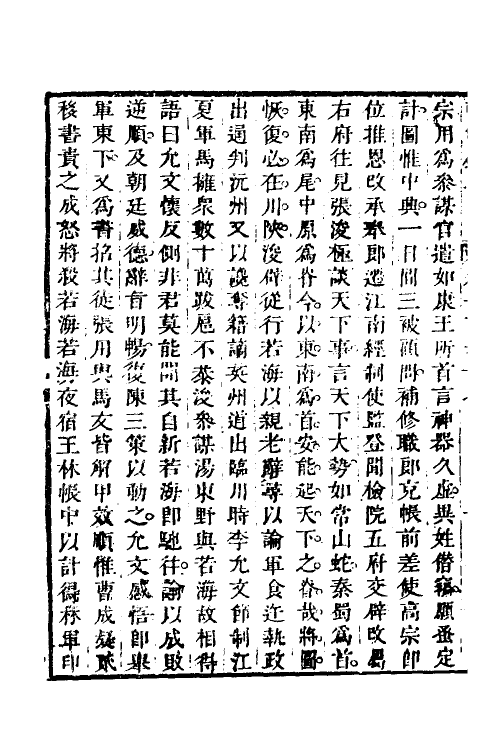 宗用為參謀官遣如康王所首言神器久虛異姓僭竊願蚤定
計圖惟中興一日間三被顧問補修職郎充帳前差使高宗即
位推恩改承奉郎遷江南經制使監登聞檢院五府交辟改
右府往見張浚極談天下事言天下大勢如常山蛇秦蜀為首
東南為尾中原為脊今以東南為首安能起天下之脊哉將圖
恢復必在川陝浚辟從行若海以親老辭尋以論軍食迕執政
出通判沅州又以談奪籍謫英州道出臨川時李允文節制江
夏軍馬擁眾數十萬跋扈不恭浚參謀湯東野與若海故相得
語曰允文懷反側非君莫能開其自新若海即馳往諭以成敗
逆順及朝廷威德辭旨明暢復陳三策以動之允文感悟即舉
軍東下又為書招其徒張用與馬友皆解甲效順惟曹成疑
移書責之成怒將殺若海若海夜宿王林帳中以計得林軍印